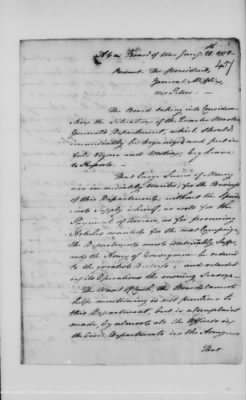 At a Board of War Jany 28th 1779
457
Present The President,
General
Mr Peters
The Board taking into Considera-
tion the Situation of the Quarter Master
General's Department, which should
immediately be and put in-
to Vigour and Motion, beg leave
to Report
That large Sums of Money
are immediately wanted, for the Business
of this Department, without the Speedy
Supply whereof as well for the
Payment of Services, as for procuring
Articles wanted for the next Campaign
the Department must inevitably Suffer
and the Army of Consequence be
in its Operations the ensuing Season
The Want of Cash, the Board cannot
help mentioning is not peculiar to
this Department, but is a Complaint
made by almost all the Officers in
the Civil Departments in the Army.
That